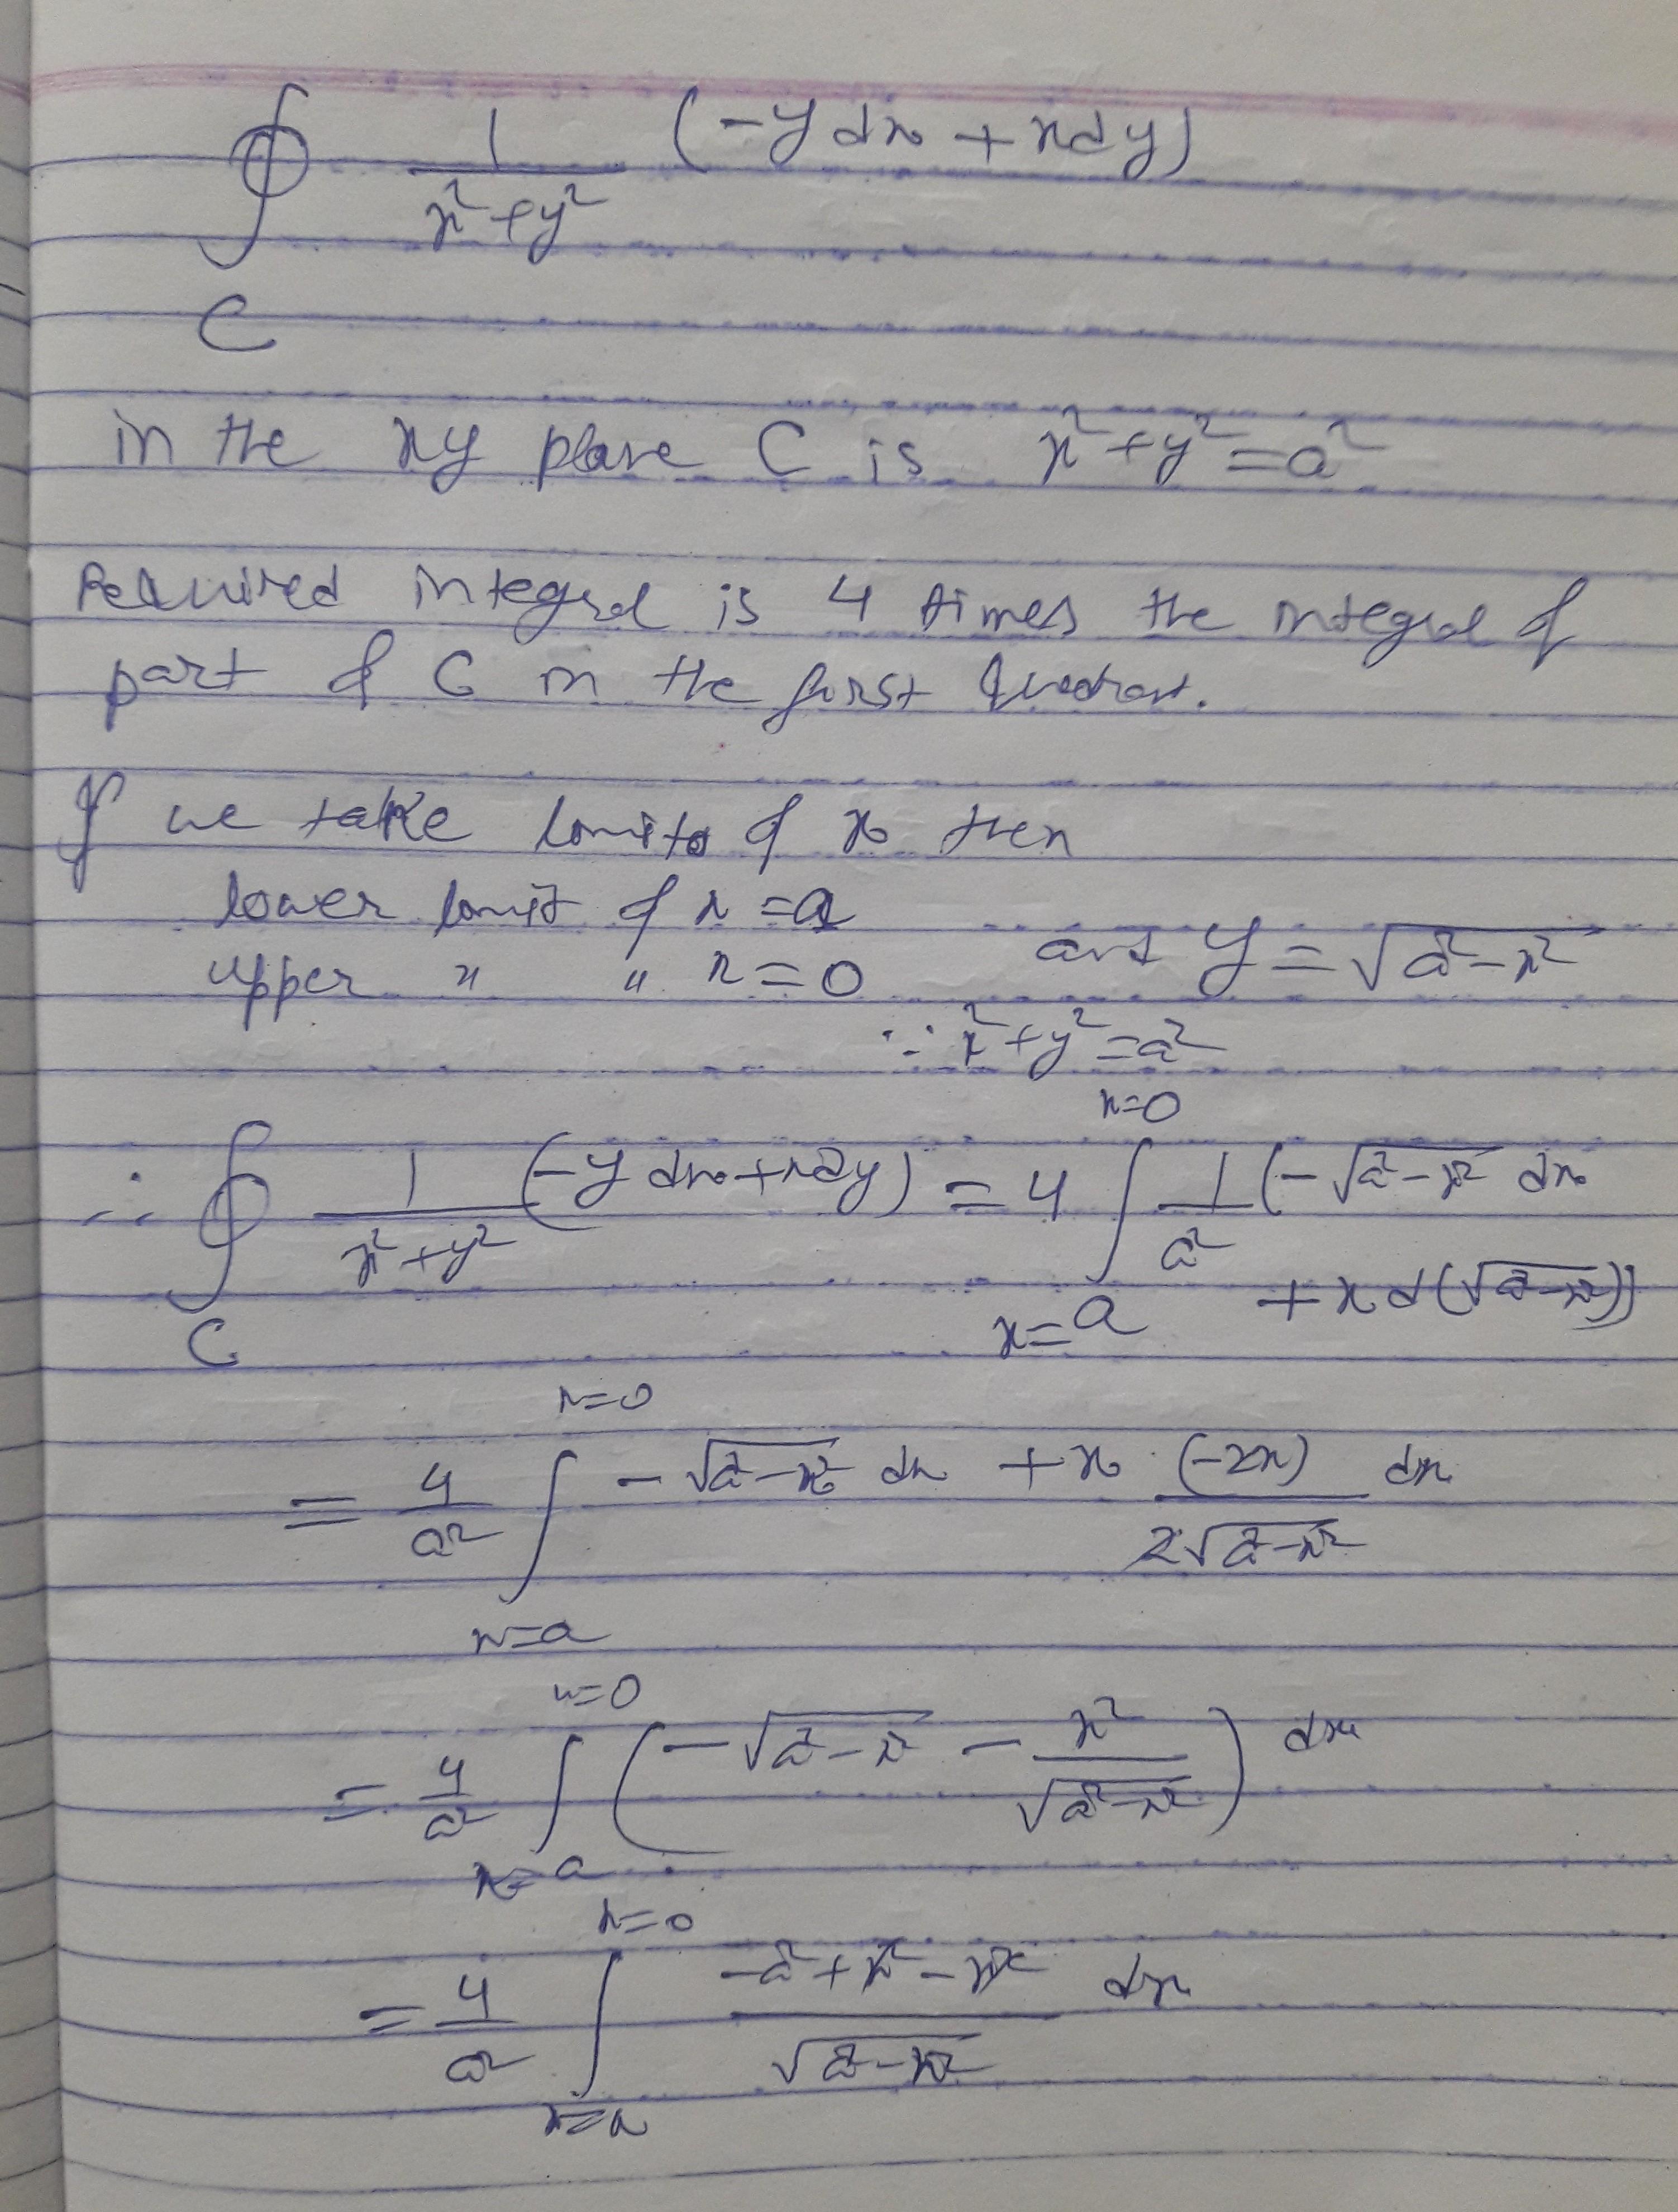 ∮ 1/(x²+y²) (-y dx + x dy)
C
in the xy plane C is x²+y²=a²
Required integral is 4 times the integral of
part of C in the first Quadrant.
If we take limits of x then
lower limit of x = a
upper " " x = 0 and y = √(a²-x²)
∵ x²+y²=a²
∴ ∮_C 1/(x²+y²) (-y dx + x dy) = 4 ∫_{x=a}^{x=0} 1/a² (-√(a²-x²) dx
+ x d(√(a²-x²)))
= 4/a² ∫_{x=a}^{x=0} -√(a²-x²) dx + x · (-2x)/(2√(a²-x²)) dx
= 4/a² ∫_{x=a}^{x=0} (-√(a²-x²) - x²/√(a²-x²)) dx
= 4/a² ∫_{x=a}^{x=0} (-a²+x²-x²)/√(a²-x²) dx